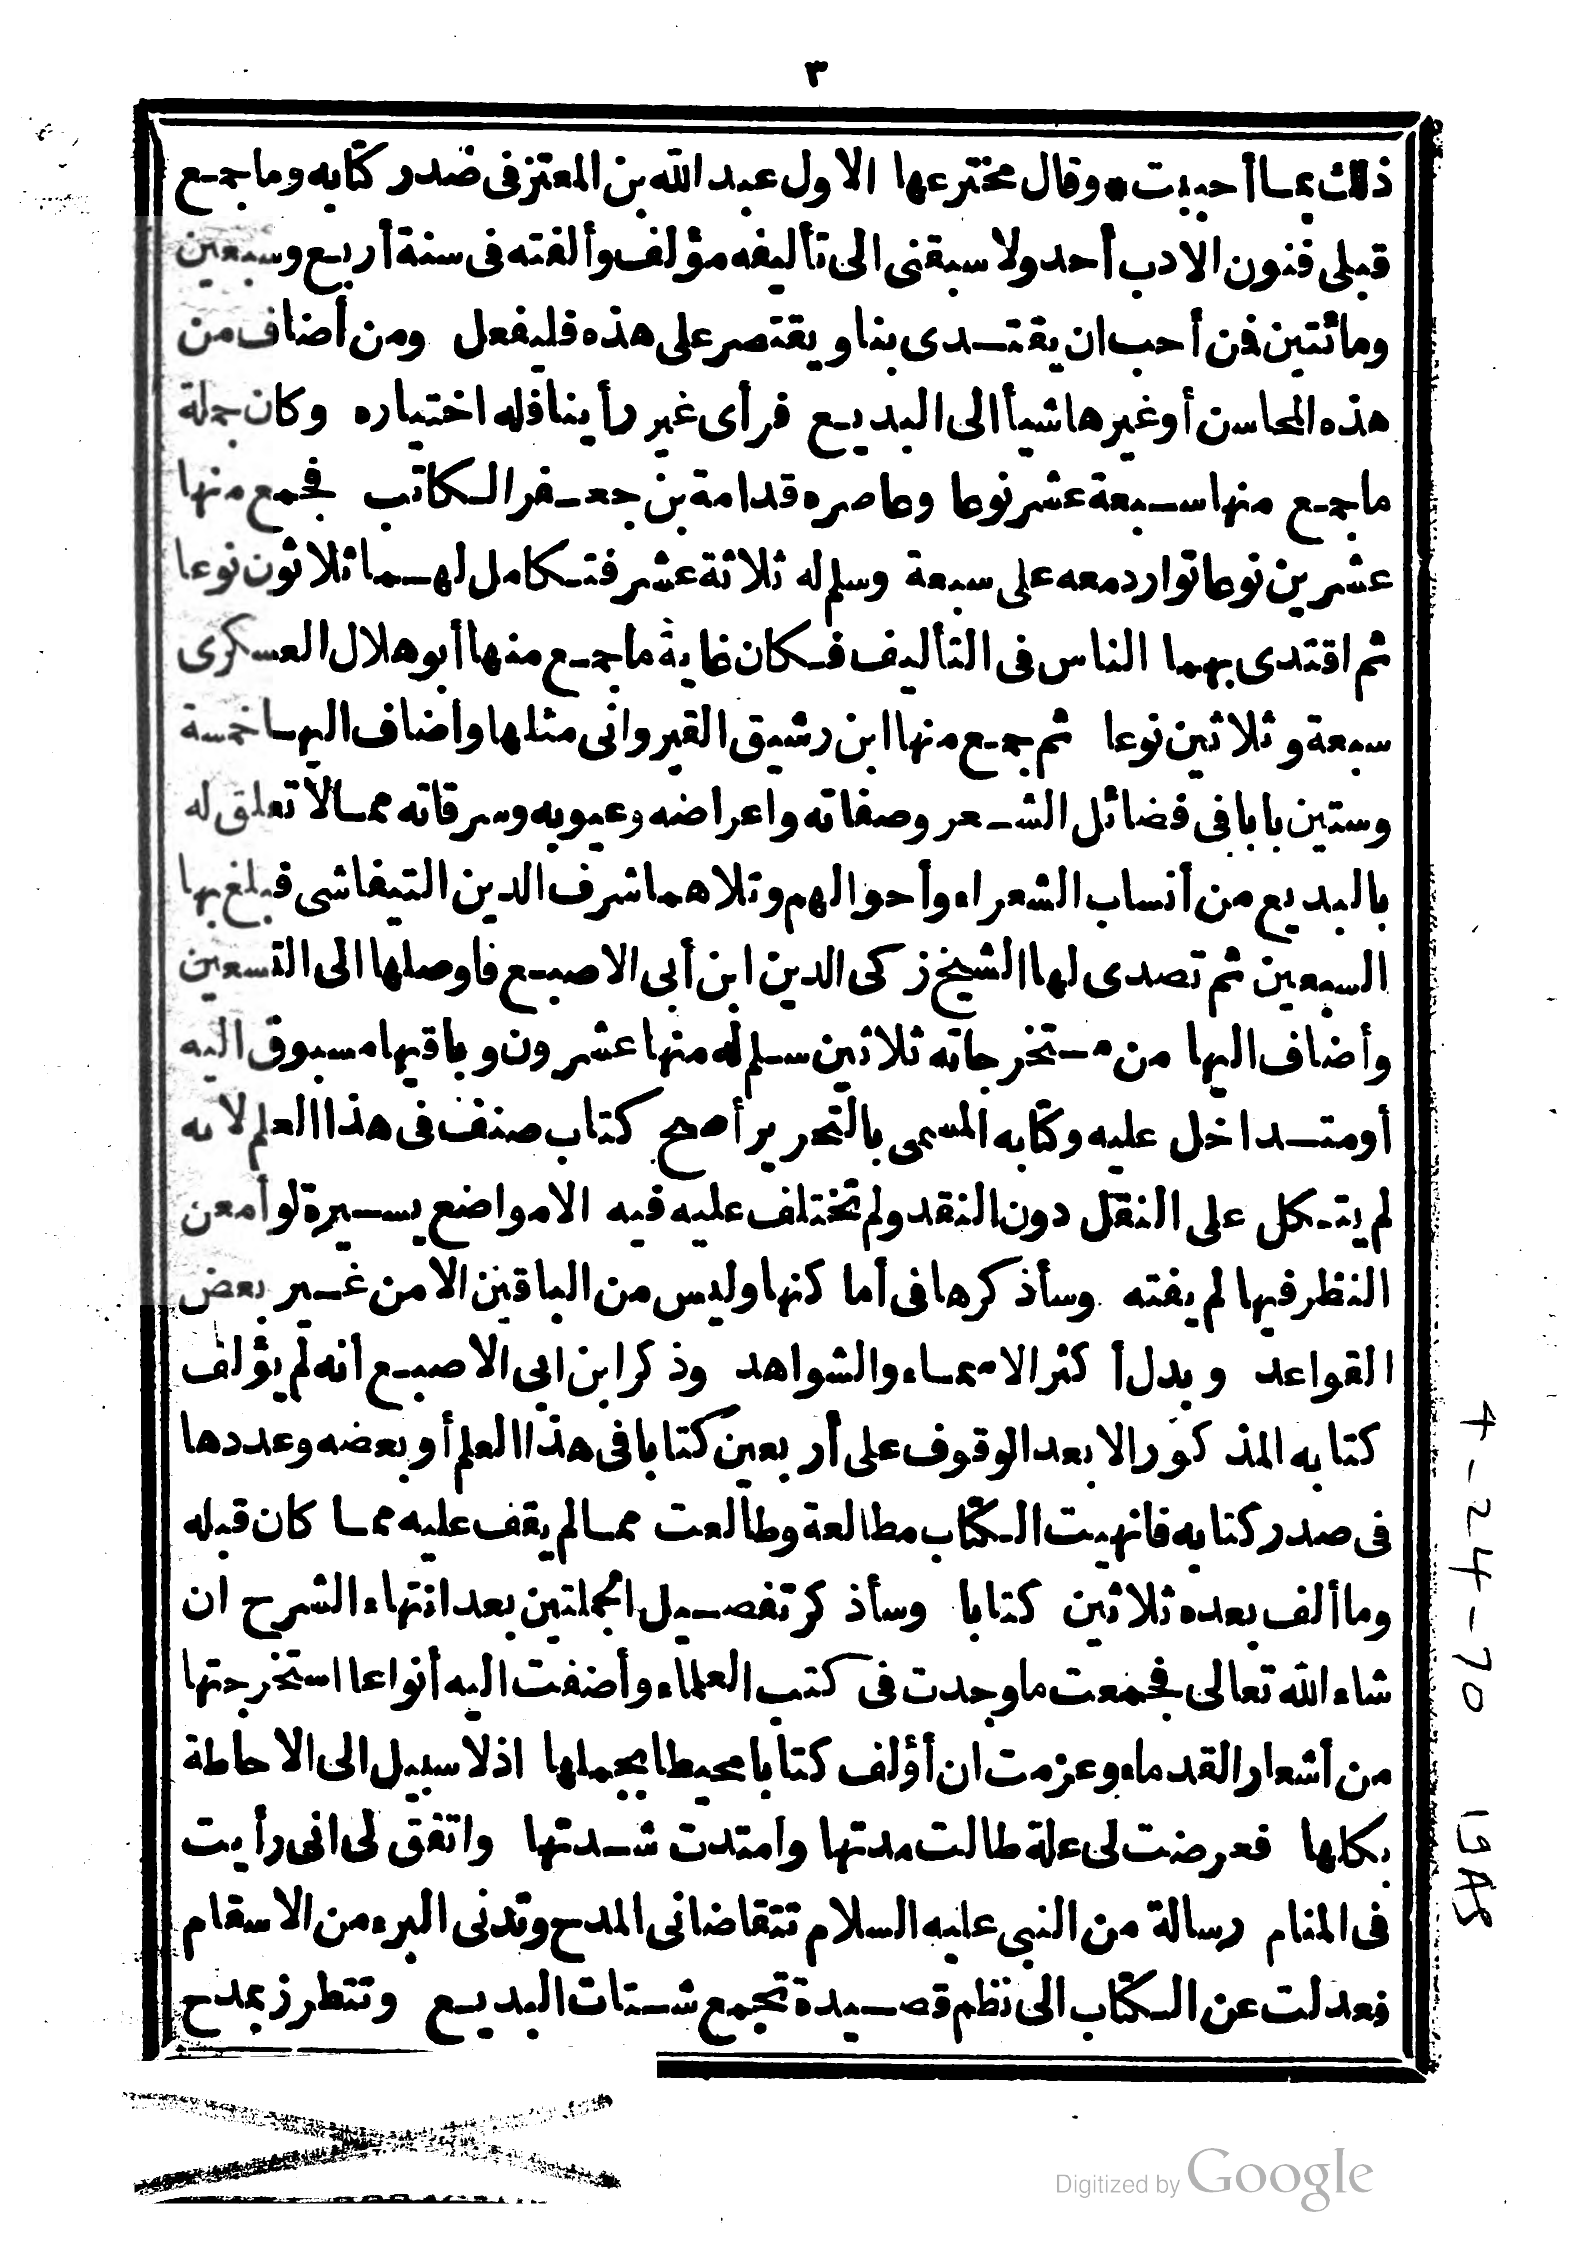 ٣
ذلك بما أحببت * وقال مخترعها الاول عبد الله بن المعتز فى صدر كتابه وما جمع
قبلى فنون الادب أحد ولا سبقنى الى تأليفه مؤلف وألفته فى سنة أربع وسبعين
ومائتين فمن أحب ان يقتدى بنا ويقتصر على هذه فليفعل ومن أضاف من
هذه المحاسن أو غيرها شيأ الى البديع فرأى غير رأينا فله اختياره وكان جملة
ما جمع منها سبعة عشر نوعا وعاصره قدامة بن جعفر الكاتب فجمع منها
عشرين نوعا توارد معه على سبعة وسلم له ثلاثة عشر فتكامل لهما ثلاثون نوعا
ثم اقتدى بهما الناس فى التأليف فكان غاية ما جمع منها أبو هلال العسكرى
سبعة وثلاثين نوعا ثم جمع منها ابن رشيق القيروانى مثلها وأضاف اليها خمسة
وستين بابا فى فضائل الشعر وصفاته واعراضه وعيوبه وسرقاته مما لا تعلق له
بالبديع من أنساب الشعراء وأحوالهم وتلاهما شرف الدين التيفاشى فبلغ بها
السبعين ثم تصدى لها الشيخ زكى الدين ابن أبى الاصبع فاوصلها الى التسعين
وأضاف اليها من مستخرجاته ثلاثين سلم له منها عشرون وباقيها مسبوق اليه
أو متداخل عليه وكتابه المسمى بالتحرير أصح كتاب صنف فى هذا العلم لانه
لم يتكل على النقل دون النقد ولم تختلف عليه فيه الا مواضع يسيرة لو أمعن
النظر فيها لم يفته وسأذكرها فى أماكنها وليس من الباقين الا من غير بعض
القواعد وبدل أكثر الاسماء والشواهد وذكر ابن ابى الاصبع أنه لم يؤلف
كتابه المذكور الا بعد الوقوف على أربعين كتابا فى هذا العلم أو بعضه وعددها
فى صدر كتابه فانهيت الكتاب مطالعة وطالعت مما لم يقف عليه مما كان قبله
وما ألف بعده ثلاثين كتابا وسأذكر تفصيل الجملتين بعد انتهاء الشرح ان
شاء الله تعالى فجمعت ما وجدت فى كتب العلماء وأضفت اليه أنواعا استخرجتها
من أشعار القدماء وعزمت ان أؤلف كتابا محيطا بجملها اذ لا سبيل الى الاحاطة
بكلها فعرضت لى علة طالت مدتها وامتدت شدتها واتفق لى انى رأيت
فى المنام رسالة من النبى عليه السلام تتقاضانى المدح وتدنى البرء من الاسقام
فعدلت عن الكتاب الى نظم قصيدة تجمع شتات البديع وتتطرز بمدح
4-24-70
Digitized by Google